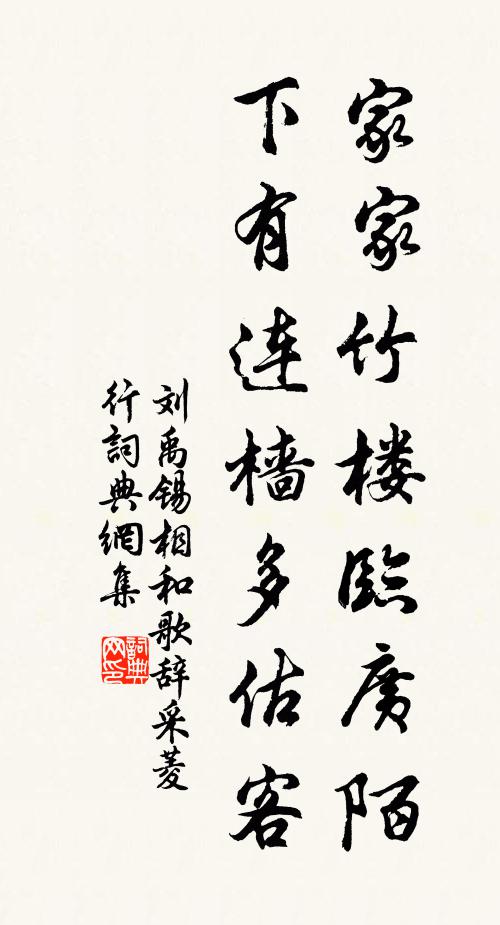 家家竹楼臨廣陌
下有连檣多估客
刘禹锡相和歌辞采菱
行詞典網集
詞典
网印